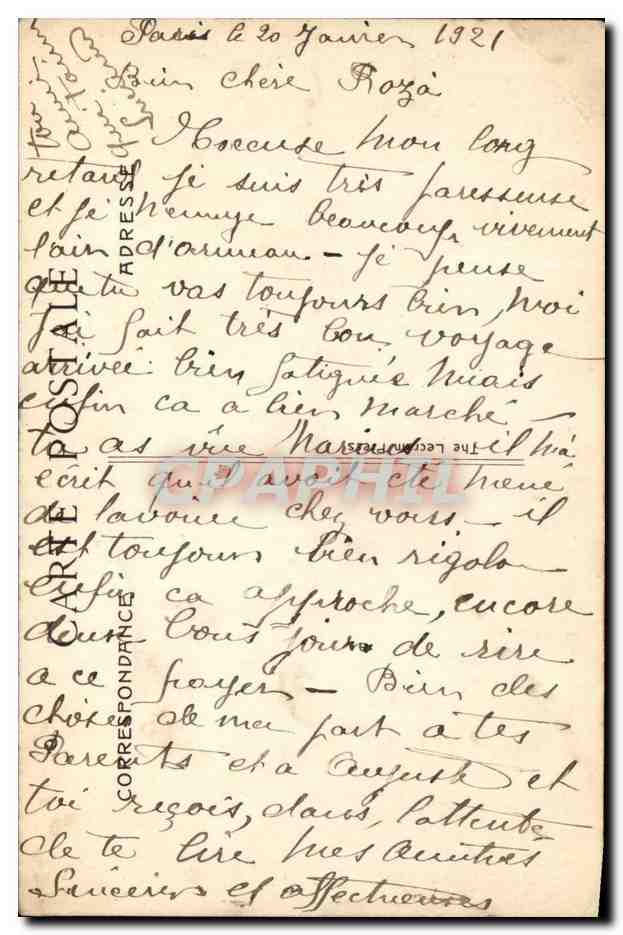 Paris le 20 Janvier 1921
Bien chère Roza
Mexcuse mon long
retard je suis très paresseuse
et je beaucoup vivement
lair d'
que tu vas toujours bien, moi
J'ai fait très bon voyage
arrivée bien fatiguée mais
enfin ca a bien marché
tu as vue Marius il m'a
écrit qu'il avait été
de lavoine chez vous il
est toujours bien rigolo
Enfin ca approche, encore
deux bons jours de rire
a ce - Bien des
choses de ma part à tes
Parents et a Auguste et
toi reçois, dans, lattente
de te lire mes Amitiés
Sincères et affectueuses
ton
amie
qui
CARTE POSTALE
ADRESSE
CORRESPONDANCE
The Lecram-Press
CPAPHIL